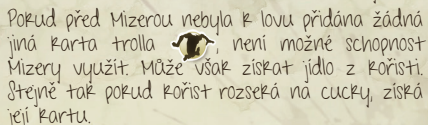 Pokud před Mizerou nebyla k lovu přidána žádná
jiná karta trolla , není možné schopnost
Mizery využít. Může však získat jídlo z kořisti.
Stejně tak pokud kořist rozseká na cucky, získá
její kartu.